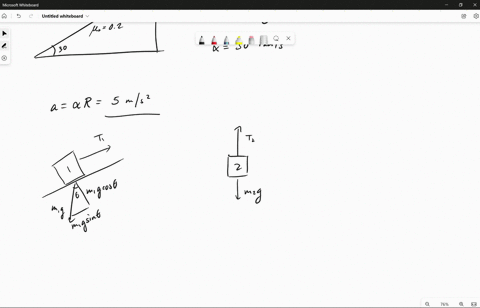 Microsoft Whiteboard
Untitled whiteboard
μₖ = 0.2
30
a = αR = 5 m/s²
T₁
1
θ
m₁g
m₁g cosθ
m₁g sinθ
T₂
2
m₂g
76%